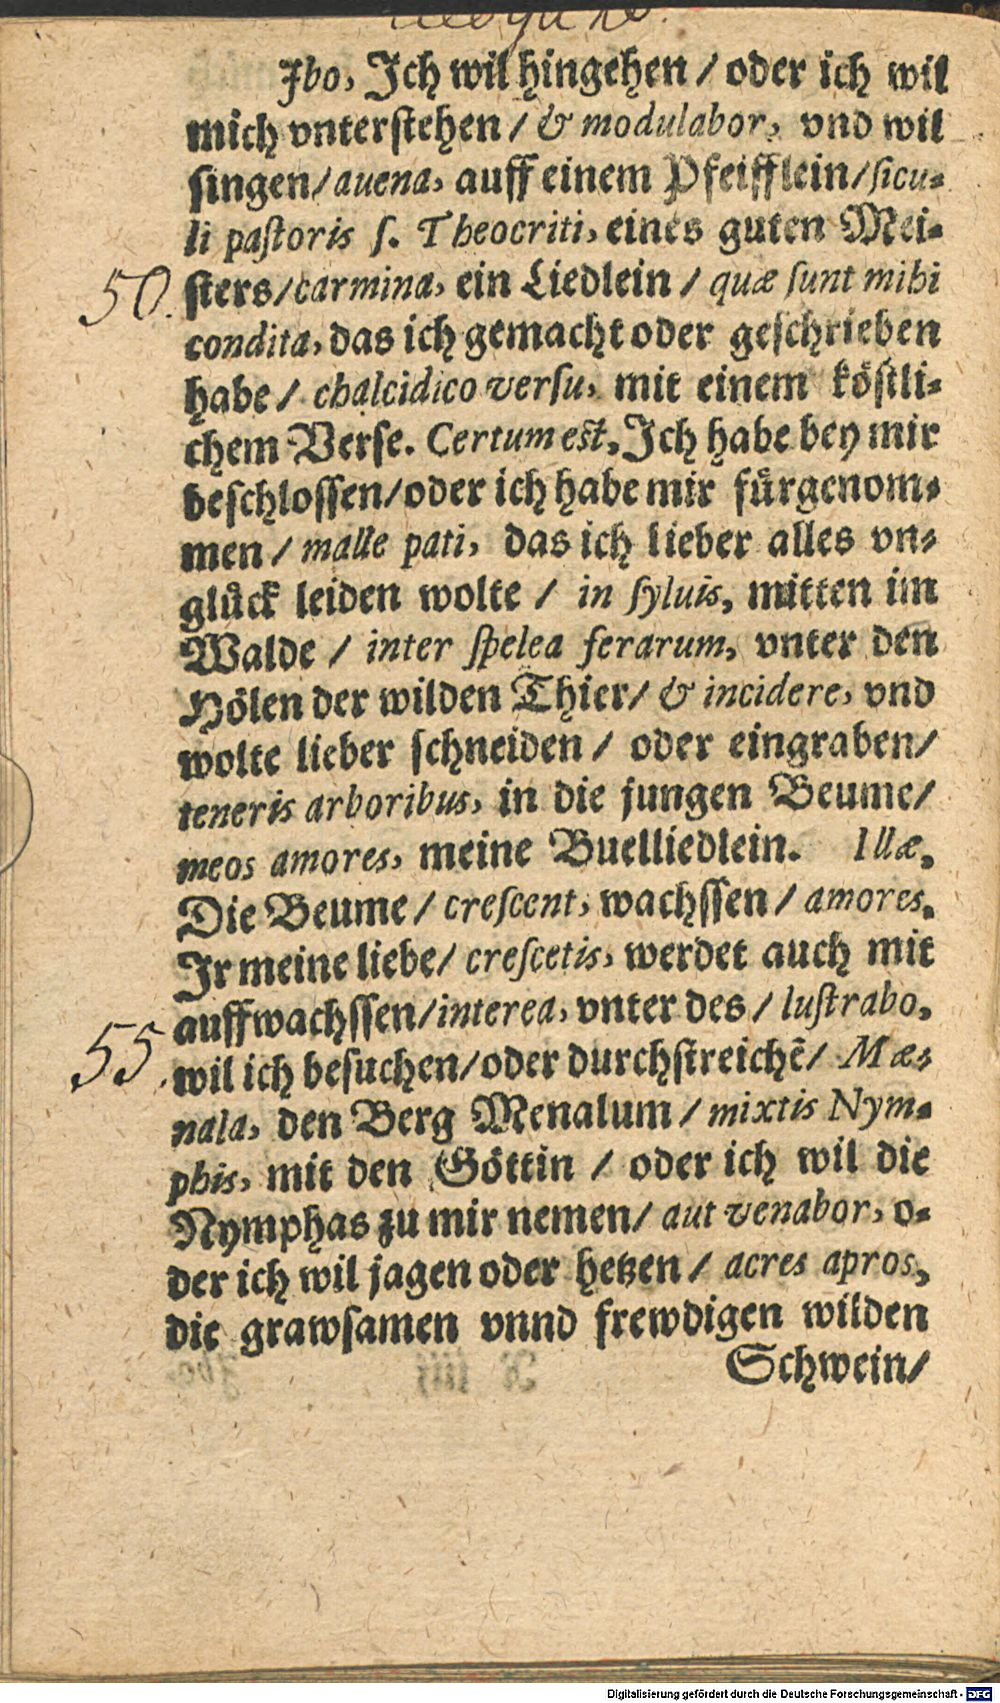 Ibo, Ich wil hingehen / oder ich wil
mich vnterstehen / & modulabor, vnd wil
singen/auena, auff einem Pfeifflein/ſicu-
li paſtoris ſ. Theocriti, eines guten Mei-
50. sters/carmina, ein Liedlein / quæ ſunt mihi
condita, das ich gemacht oder geschrieben
habe / chalcidico verſu, mit einem köstli-
chem Verse. Certum eſt, Ich habe bey mir
beschlossen/oder ich habe mir fürgenom-
men / malle pati, das ich lieber alles vn-
glück leiden wolte / in ſyluis, mitten im
Walde / inter ſpelea ferarum, vnter den
Hölen der wilden Thier/ & incidere, vnd
wolte lieber schneiden / oder eingraben/
teneris arboribus, in die jungen Beume/
meos amores, meine Buelliedlein. Illæ,
Die Beume / creſcent, wachssen / amores.
Ir meine liebe/ creſcetis, werdet auch mit
auffwachssen/interea, vnter des / luſtrabo,
55. wil ich besuchen/oder durchstreichẽ/ Mæ-
nala, den Berg Menalum / mixtis Nym-
phis, mit den Göttin / oder ich wil die
Nymphas zu mir nemen/ aut venabor, o-
der ich wil jagen oder hetzen / acres apros,
die grawsamen vnnd frewdigen wilden
Schwein/
Digitalisierung gefördert durch die Deutsche Forschungsgemeinschaft - DFG